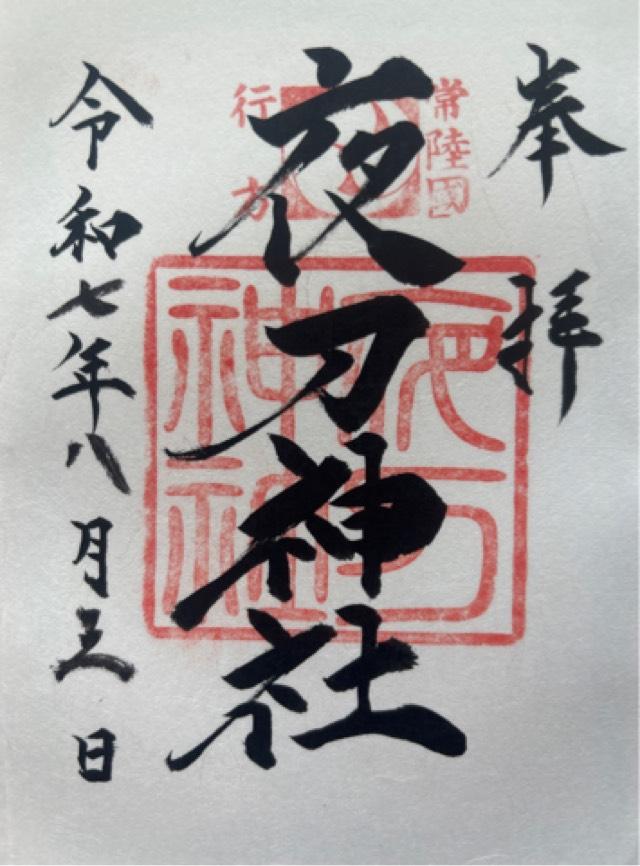 奉拝
常陸國
行方
夜刀神社
夜刀神社
令和七年八月三日